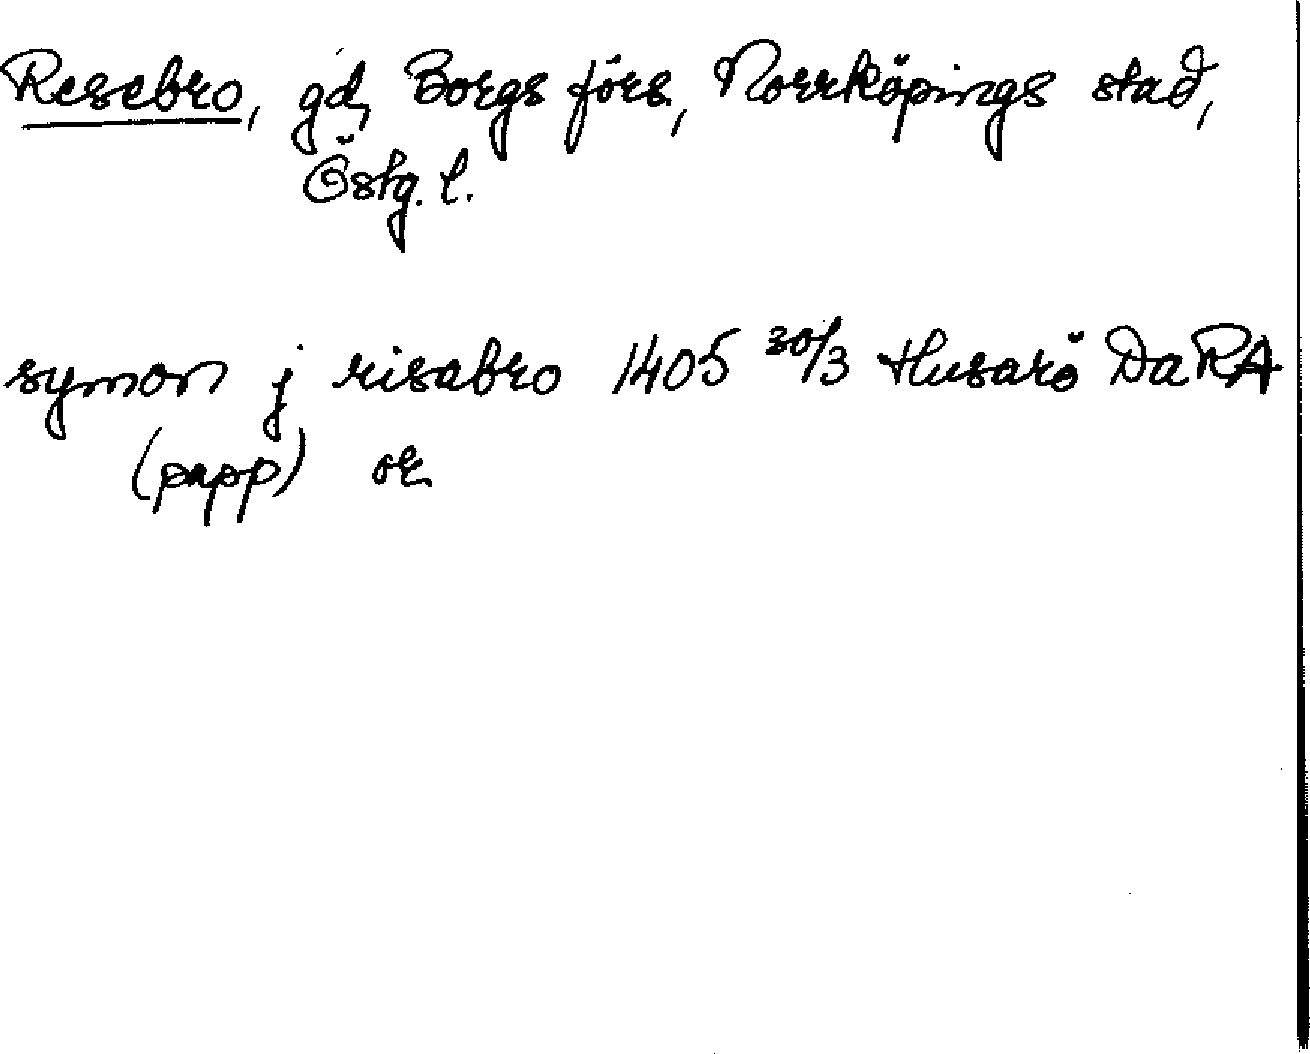 Resebro, gd, Borgs förs., Norrköpings stad,
Östg. l.
symon j risabro 1405 30/3 Husarö DaRA
(papp) or